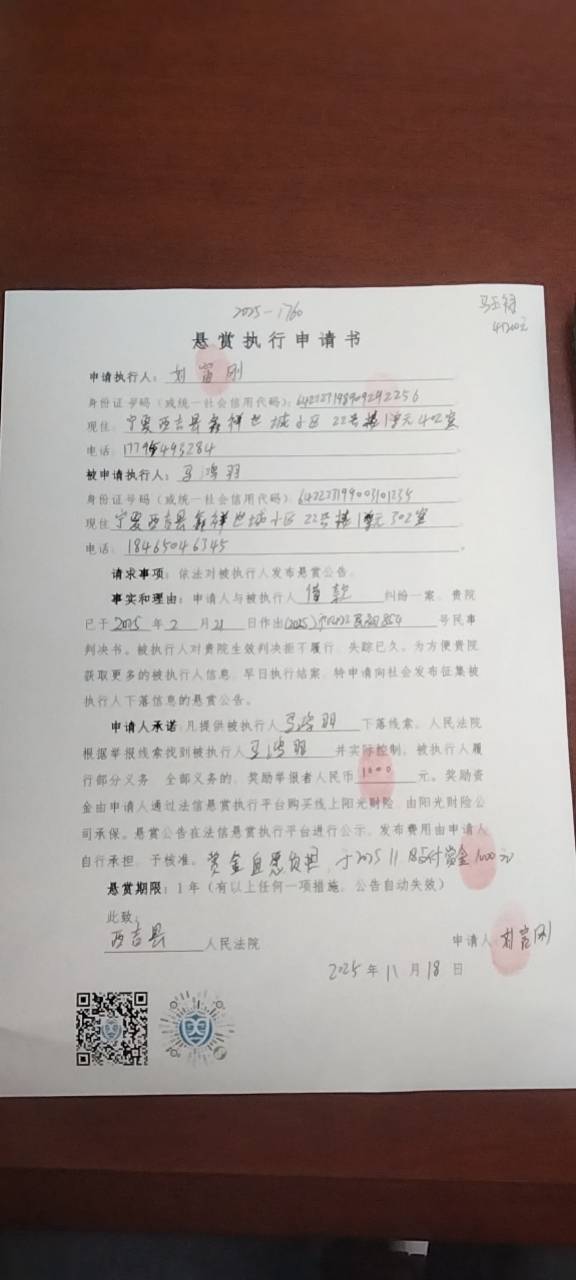 2025-1760
悬赏执行申请书
申请执行人：刘富刚
身份证号码（或统一社会信用代码）：
现住：宁夏西吉县鑫祥世城小区22号楼1单元402室
电话：
被申请执行人：马鸿羽
身份证号码（或统一社会信用代码）：
现住宁夏西吉县鑫祥世城小区22号楼1单元302室
电话：18465046345
请求事项：依法对被执行人发布悬赏公告。
事实和理由：申请人与被执行人借款纠纷一案，贵院
已于2025年2月21日作出号民事
判决书。被执行人对贵院生效判决拒不履行，失踪已久。为方便贵院
获取更多的被执行人信息，早日执行结案，特申请向社会发布征集被
执行人下落信息的悬赏公告。
申请人承诺：凡提供被执行人马鸿羽下落线索，人民法院
根据举报线索找到被执行人马鸿羽并实际控制，被执行人履
行部分义务、全部义务的，奖励举报者人民币1000元。奖励资
金由申请人通过法信悬赏执行平台购买线上阳光财险，由阳光财险公
司承保。悬赏公告在法信悬赏执行平台进行公示，发布费用由申请人
自行承担，予核准。赏金自愿负担，于2025 11 18支付赏金1000元
悬赏期限：1年（有以上任何一项措施，公告自动失效）
此致：
西吉县人民法院
申请人：刘富刚
2025年11月18日